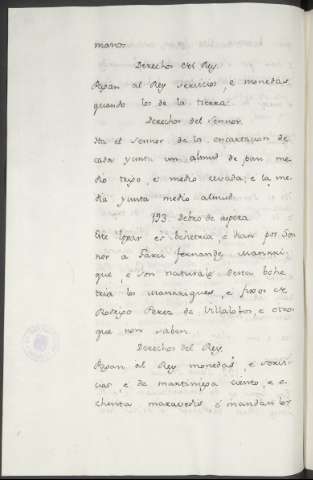 manos.
Derechos del Rey.
Pagan al Rey servicios, e monedas,
quando los de la tierra.
Derechos del sennor.
Ha el sennor de la encartacion de
cada yunta un almud de pan, me-
dio trigo, e medio cevada, e la me-
dia yunta medio almud.
193. Debro de aspera
Este logar es behetria, e dan por Sen-
nor a Garci Fernandez Manrri-
que, e son naturales desta behe-
tria los Manrriques, e fijos de
Rodrigo Perez de Villalobos, e otros
que non saben.
Derechos del Rey.
Pagan al Rey monedas, e servi-
cios, e de martiniega ciento, e o-
chenta maravedis, e mandan los